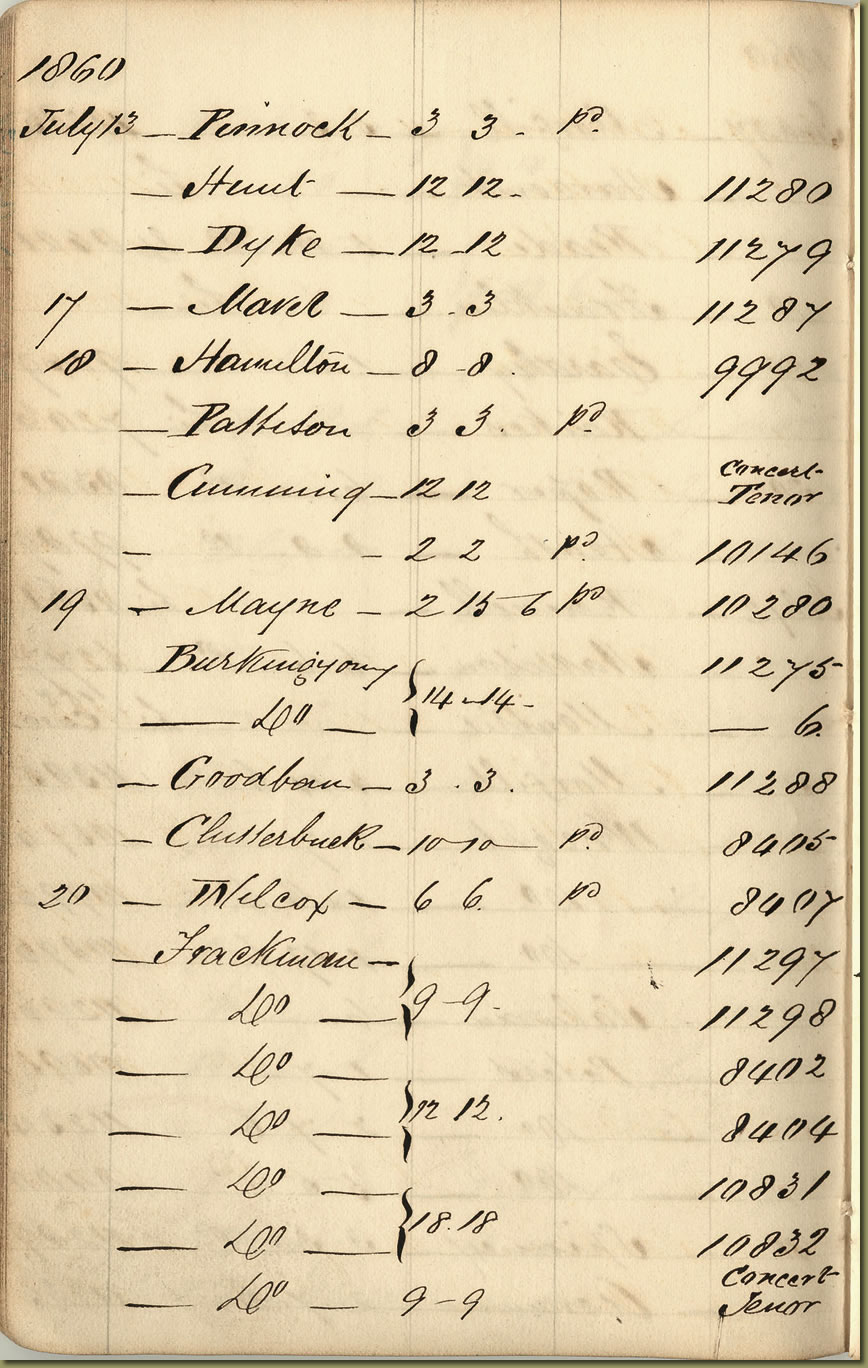 1860
July 13 — Pinnock — 3 3 - pd.
— Hunt — 12 12 - 11280
— Dyke — 12 - 12 11279
17 — Mavel — 3 - 3 11287
18 — Hamilton — 8 - 8 . 9992
— Pattison 3 3 . pd.
— Cumming — 12 12 Concert Tenor
— — 2 2 pd. 10146
19 — Mayne — 2 15 6 pd 10280
Burkingyoung 11275
— Do — } 14 - 14 - — 6.
— Goodban — 3 . 3 . 11288
— Clutterbuck — 10 - 10 — pd. 8405
20 — Wilcox — 6 6. pd 8407
— Frackman — 11297
— Do — } 9 - 9 - 11298
— Do — 8402
— Do — } 12 12 . 8404
— Do — 10831
— Do — } 18 . 18 10832
— Do — 9 - 9 Concert Tenor